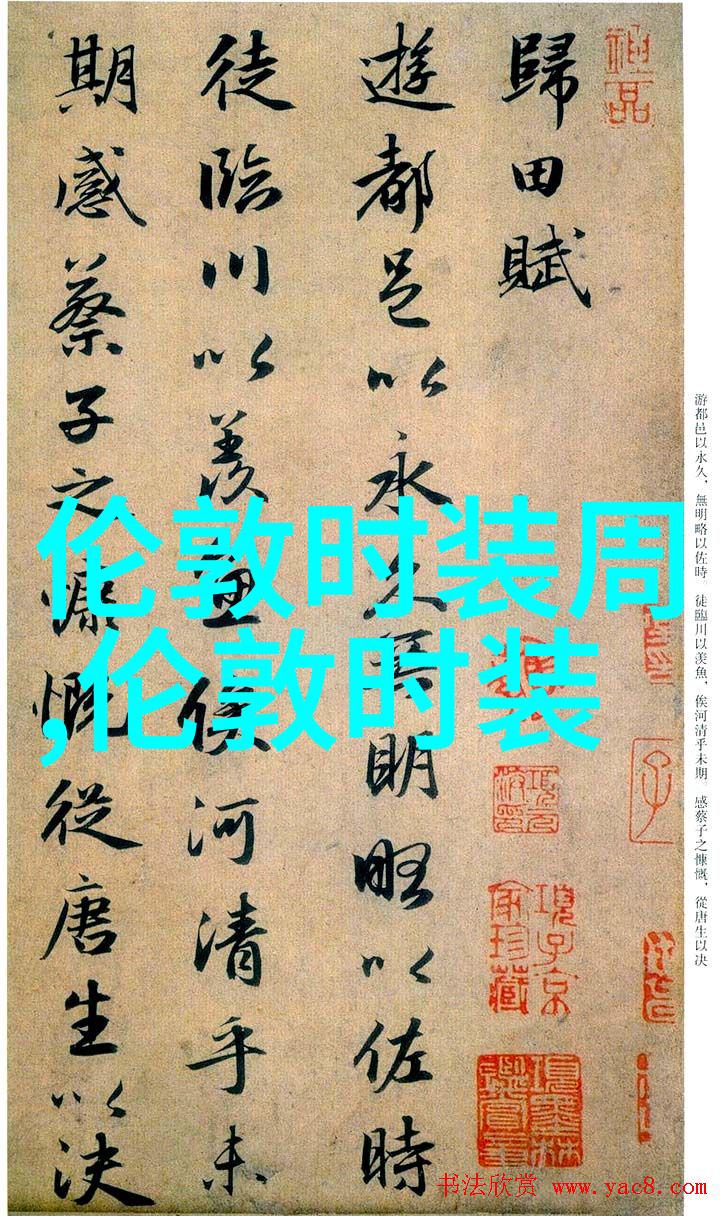 歸田賦
遊都邑以永久無明略以佐時
徒臨川以羨魚俟河清乎未
期感蔡子之慷慨從唐生以決
游都邑以永久，無明略以佐時。徒臨川以羨魚，俟河清乎未期。感蔡子之慷慨，從唐生以决
伦敦时装周
,伦敦时装
項子京
家珍藏
書法欣賞 www.yac8.com